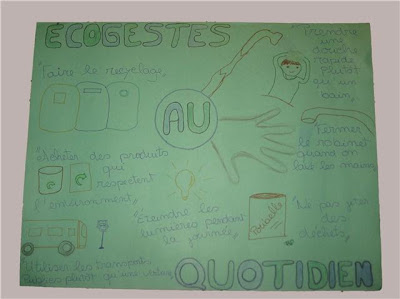 ÉCOGESTES
AU
QUOTIDIEN
"Faire le recyclage,
"Prendre
une
douche
rapide
plutôt
qu'un
bain,
"Fermer
le robinet
quand on
lait les mains,
"Acheter des produits
qui
respectent
l'environnement,
"Éteindre les
lumières pendant
la journée,
Poubelle
"Ne pas
des
déchets,
Utiliser les transports
plutôt qu'une